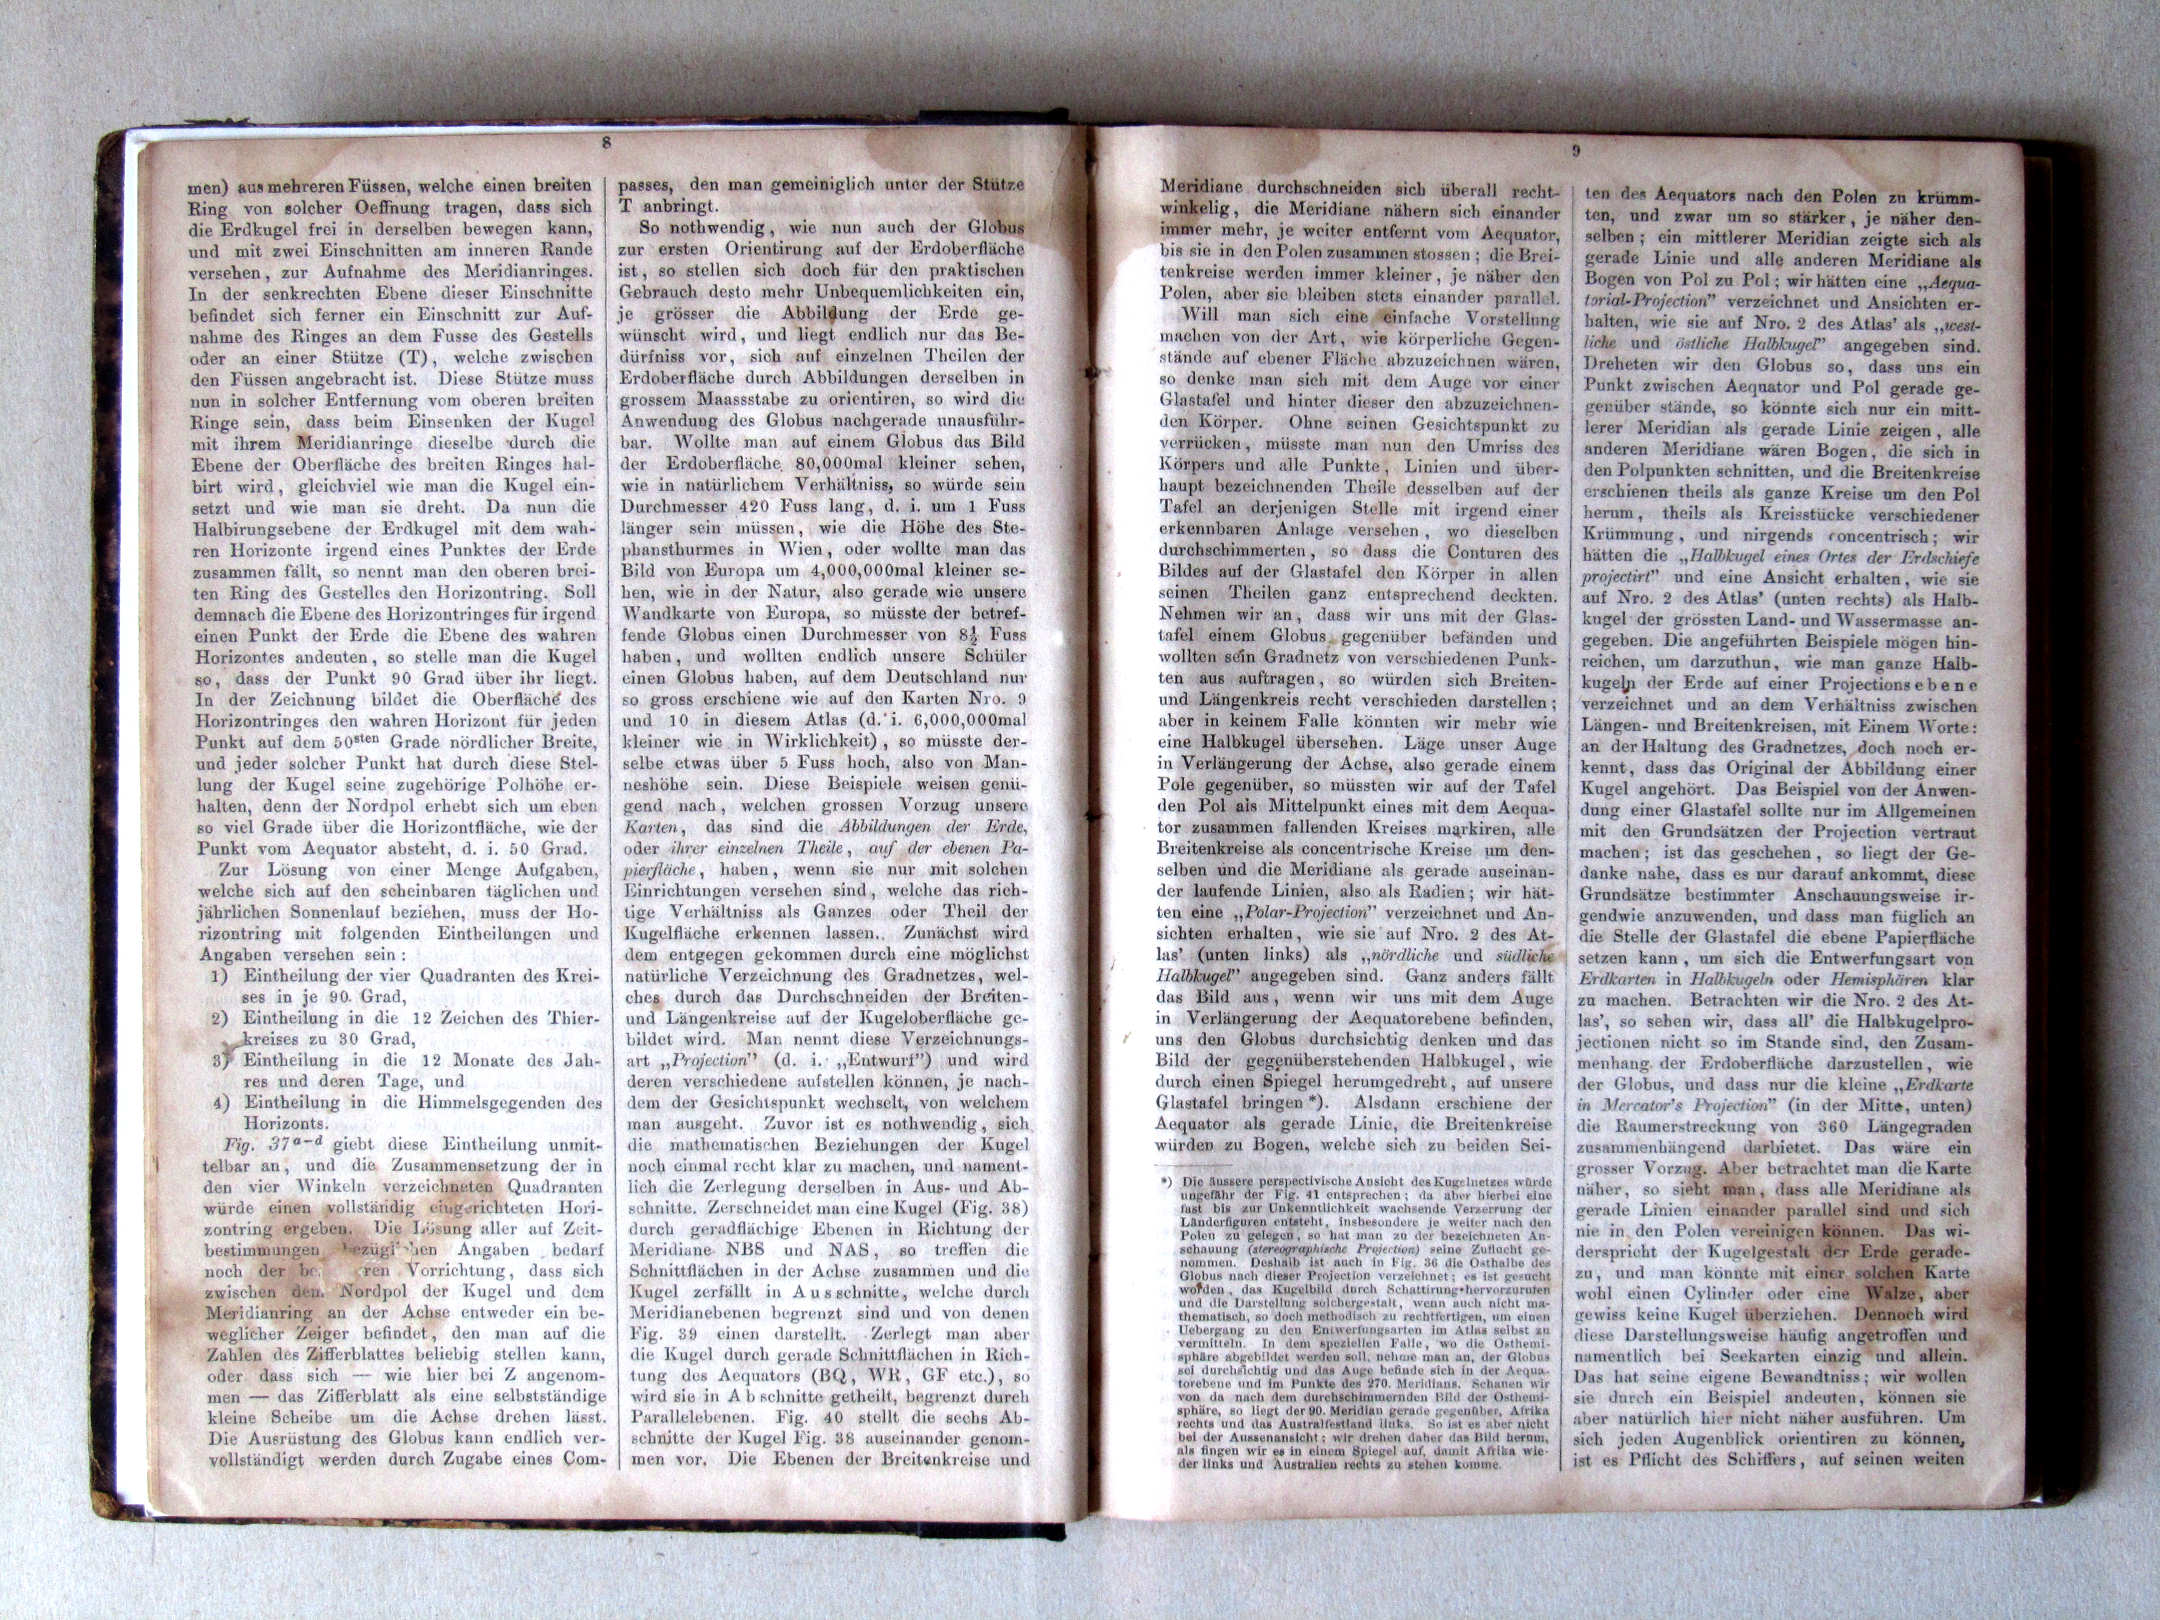 8
men) aus mehreren Füssen, welche einen breiten
Ring von solcher Oeffnung tragen, dass sich
die Erdkugel frei in derselben bewegen kann,
und mit zwei Einschnitten am inneren Rande
versehen, zur Aufnahme des Meridianringes.
In der senkrechten Ebene dieser Einschnitte
befindet sich ferner ein Einschnitt zur Auf-
nahme des Ringes an dem Fusse des Gestells
oder an einer Stütze (T), welche zwischen
den Füssen angebracht ist. Diese Stütze muss
nun in solcher Entfernung vom oberen breiten
Ringe sein, dass beim Einsenken der Kugel
mit ihrem Meridianringe dieselbe durch die
Ebene der Oberfläche des breiten Ringes hal-
birt wird, gleichviel wie man die Kugel ein-
setzt und wie man sie dreht. Da nun die
Halbirungsebene der Erdkugel mit dem wah-
ren Horizonte irgend eines Punktes der Erde
zusammen fällt, so nennt man den oberen brei-
ten Ring des Gestelles den Horizontring. Soll
demnach die Ebene des Horizontringes für irgend
einen Punkt der Erde die Ebene des wahren
Horizontes andeuten, so stelle man die Kugel
so, dass der Punkt 90 Grad über ihr liegt.
In der Zeichnung bildet die Oberfläche des
Horizontringes den wahren Horizont für jeden
Punkt auf dem 50sten Grade nördlicher Breite,
und jeder solcher Punkt hat durch diese Stel-
lung der Kugel seine zugehörige Polhöhe er-
halten, denn der Nordpol erhebt sich um eben
so viel Grade über die Horizontfläche, wie der
Punkt vom Aequator absteht, d. i. 50 Grad.
Zur Lösung von einer Menge Aufgaben,
welche sich auf den scheinbaren täglichen und
jährlichen Sonnenlauf beziehen, muss der Ho-
rizontring mit folgenden Eintheilungen und
Angaben versehen sein:
1) Eintheilung der vier Quadranten des Krei-
ses in je 90 Grad,
2) Eintheilung in die 12 Zeichen des Thier-
kreises zu 30 Grad,
3) Eintheilung in die 12 Monate des Jah-
res und deren Tage, und
4) Eintheilung in die Himmelsgegenden des
Horizonts.
Fig. 37a–d giebt diese Eintheilung unmit-
telbar an, und die Zusammensetzung der in
den vier Winkeln verzeichneten Quadranten
würde einen vollständig eingerichteten Hori-
zontring ergeben. Die Lösung aller auf Zeit-
bestimmungen Angaben bedarf
noch der Vorrichtung, dass sich
zwischen dem Nordpol der Kugel und dem
Meridianring an der Achse entweder ein be-
weglicher Zeiger befindet, den man auf die
Zahlen des Zifferblattes beliebig stellen kann,
oder dass sich — wie hier bei Z angenom-
men — das Zifferblatt als eine selbstständige
kleine Scheibe um die Achse drehen lässt.
Die Ausrüstung des Globus kann endlich ver-
vollständigt werden durch Zugabe eines Com-
passes, den man gemeiniglich unter der Stütze
T anbringt.
So nothwendig, wie nun auch der Globus
zur ersten Orientirung auf der Erdoberfläche
ist, so stellen sich doch für den praktischen
Gebrauch desto mehr Unbequemlichkeiten ein,
je grösser die Abbildung der Erde ge-
wünscht wird, und liegt endlich nur das Be-
dürfniss vor, sich auf einzelnen Theilen der
Erdoberfläche durch Abbildungen derselben in
grossem Maassstabe zu orientiren, so wird die
Anwendung des Globus nachgerade unausführ-
bar. Wollte man auf einem Globus das Bild
der Erdoberfläche 80,000mal kleiner sehen,
wie in natürlichem Verhältniss, so würde sein
Durchmesser 420 Fuss lang, d. i. um 1 Fuss
länger sein müssen, wie die Höhe des Ste-
phansthurmes in Wien, oder wollte man das
Bild von Europa um 4,000,000mal kleiner se-
hen, wie in der Natur, also gerade wie unsere
Wandkarte von Europa, so müsste der betref-
fende Globus einen Durchmesser von 8½ Fuss
haben, und wollten endlich unsere Schüler
einen Globus haben, auf dem Deutschland nur
so gross erschiene wie auf den Karten Nro. 9
und 10 in diesem Atlas (d. i. 6,000,000mal
kleiner wie in Wirklichkeit), so müsste der-
selbe etwas über 5 Fuss hoch, also von Man-
neshöhe sein. Diese Beispiele weisen genü-
gend nach, welchen grossen Vorzug unsere
Karten, das sind die Abbildungen der Erde,
oder ihrer einzelnen Theile, auf der ebenen Pa-
pierfläche, haben, wenn sie nur mit solchen
Einrichtungen versehen sind, welche das rich-
tige Verhältniss als Ganzes oder Theil der
Kugelfläche erkennen lassen. Zunächst wird
dem entgegen gekommen durch eine möglichst
natürliche Verzeichnung des Gradnetzes, wel-
ches durch das Durchschneiden der Breiten-
und Längenkreise auf der Kugeloberfläche ge-
bildet wird. Man nennt diese Verzeichnungs-
art „Projection” (d. i. „Entwurf”) und wird
deren verschiedene aufstellen können, je nach-
dem der Gesichtspunkt wechselt, von welchem
man ausgeht. Zuvor ist es nothwendig, sich
die mathematischen Beziehungen der Kugel
noch einmal recht klar zu machen, und nament-
lich die Zerlegung derselben in Aus- und Ab-
schnitte. Zerschneidet man eine Kugel (Fig. 38)
durch geradflächige Ebenen in Richtung der
Meridiane NBS und NAS, so treffen die
Schnittflächen in der Achse zusammen und die
Kugel zerfällt in Ausschnitte, welche durch
Meridianebenen begrenzt sind und von denen
Fig. 39 einen darstellt. Zerlegt man aber
die Kugel durch gerade Schnittflächen in Rich-
tung des Aequators (BQ, WR, GF etc.), so
wird sie in Abschnitte getheilt, begrenzt durch
Parallelebenen. Fig. 40 stellt die sechs Ab-
schnitte der Kugel Fig. 38 auseinander genom-
men vor. Die Ebenen der Breitenkreise und
9
Meridiane durchschneiden sich überall recht-
winkelig, die Meridiane nähern sich einander
immer mehr, je weiter entfernt vom Aequator,
bis sie in den Polen zusammen stossen; die Brei-
tenkreise werden immer kleiner, je näher den
Polen, aber sie bleiben stets einander parallel.
Will man sich eine einfache Vorstellung
machen von der Art, wie körperliche Gegen-
stände auf ebener Fläche abzuzeichnen wären,
so denke man sich mit dem Auge vor einer
Glastafel und hinter dieser den abzuzeichnen-
den Körper. Ohne seinen Gesichtspunkt zu
verrücken, müsste man nun den Umriss des
Körpers und alle Punkte, Linien und über-
haupt bezeichnenden Theile desselben auf der
Tafel an derjenigen Stelle mit irgend einer
erkennbaren Anlage versehen, wo dieselben
durchschimmerten, so dass die Conturen des
Bildes auf der Glastafel den Körper in allen
seinen Theilen ganz entsprechend deckten.
Nehmen wir an, dass wir uns mit der Glas-
tafel einem Globus gegenüber befänden und
wollten sein Gradnetz von verschiedenen Punk-
ten aus auftragen, so würden sich Breiten-
und Längenkreis recht verschieden darstellen;
aber in keinem Falle könnten wir mehr wie
eine Halbkugel übersehen. Läge unser Auge
in Verlängerung der Achse, also gerade einem
Pole gegenüber, so müssten wir auf der Tafel
den Pol als Mittelpunkt eines mit dem Aequa-
tor zusammen fallenden Kreises markiren, alle
Breitenkreise als concentrische Kreise um den-
selben und die Meridiane als gerade auseinan-
der laufende Linien, also als Radien; wir hät-
ten eine „Polar-Projection” verzeichnet und An-
sichten erhalten, wie sie auf Nro. 2 des At-
las’ (unten links) als „nördliche und südliche
Halbkugel” angegeben sind. Ganz anders fällt
das Bild aus, wenn wir uns mit dem Auge
in Verlängerung der Aequatorebene befinden,
uns den Globus durchsichtig denken und das
Bild der gegenüberstehenden Halbkugel, wie
durch einen Spiegel herumgedreht, auf unsere
Glastafel bringen *). Alsdann erschiene der
Aequator als gerade Linie, die Breitenkreise
würden zu Bogen, welche sich zu beiden Sei-
*) Die äussere perspectivische Ansicht des Kugelnetzes würde
ungefähr der Fig. 41 entsprechen; da aber hierbei eine
fast bis zur Unkenntlichkeit wachsende Verzerrung der
Länderfiguren entsteht, insbesondere je weiter nach den
Polen zu gelegen, so hat man zu der bezeichneten An-
schauung (stereographische Projection) seine Zuflucht ge-
nommen. Deshalb ist auch in Fig. 36 die Osthalbe des
Globus nach dieser Projection verzeichnet; es ist gesucht
worden, das Kugelbild durch Schattirung hervorzurufen
und die Darstellung solchergestalt, wenn auch nicht ma-
thematisch, so doch methodisch zu rechtfertigen, um einen
Uebergang zu den Entwerfungsarten im Atlas selbst zu
vermitteln. In dem speziellen Falle, wo die Osthemi-
sphäre abgebildet werden soll, nehme man an, der Globus
sei durchsichtig und das Auge befinde sich in der Aequa-
torebene und im Punkte des 270. Meridians. Schauen wir
von da nach dem durchschimmernden Bild der Osthemi-
sphäre, so liegt der 90. Meridian gerade gegenüber, Afrika
rechts und das Australfestland links. So ist es aber nicht
bei der Aussenansicht; wir drehen daher das Bild herum,
als fingen wir es in einem Spiegel auf, damit Afrika wie-
der links und Australien rechts zu stehen komme.
ten des Aequators nach den Polen zu krümm-
ten, und zwar um so stärker, je näher den-
selben; ein mittlerer Meridian zeigte sich als
gerade Linie und alle anderen Meridiane als
Bogen von Pol zu Pol; wir hätten eine „Aequa-
torial-Projection” verzeichnet und Ansichten er-
halten, wie sie auf Nro. 2 des Atlas’ als „west-
liche und östliche Halbkugel” angegeben sind.
Dreheten wir den Globus so, dass uns ein
Punkt zwischen Aequator und Pol gerade ge-
genüber stände, so könnte sich nur ein mitt-
lerer Meridian als gerade Linie zeigen, alle
anderen Meridiane wären Bogen, die sich in
den Polpunkten schnitten, und die Breitenkreise
erschienen theils als ganze Kreise um den Pol
herum, theils als Kreisstücke verschiedener
Krümmung, und nirgends concentrisch; wir
hätten die „Halbkugel eines Ortes der Erdschiefe
projectirt” und eine Ansicht erhalten, wie sie
auf Nro. 2 des Atlas’ (unten rechts) als Halb-
kugel der grössten Land- und Wassermasse an-
gegeben. Die angeführten Beispiele mögen hin-
reichen, um darzuthun, wie man ganze Halb-
kugeln der Erde auf einer Projectionsebene
verzeichnet und an dem Verhältniss zwischen
Längen- und Breitenkreisen, mit Einem Worte:
an der Haltung des Gradnetzes, doch noch er-
kennt, dass das Original der Abbildung einer
Kugel angehört. Das Beispiel von der Anwen-
dung einer Glastafel sollte nur im Allgemeinen
mit den Grundsätzen der Projection vertraut
machen; ist das geschehen, so liegt der Ge-
danke nahe, dass es nur darauf ankommt, diese
Grundsätze bestimmter Anschauungsweise ir-
gendwie anzuwenden, und dass man füglich an
die Stelle der Glastafel die ebene Papierfläche
setzen kann, um sich die Entwerfungsart von
Erdkarten in Halbkugeln oder Hemisphären klar
zu machen. Betrachten wir die Nro. 2 des At-
las’, so sehen wir, dass all’ die Halbkugelpro-
jectionen nicht so im Stande sind, den Zusam-
menhang der Erdoberfläche darzustellen, wie
der Globus, und dass nur die kleine „Erdkarte
in Mercator’s Projection” (in der Mitte, unten)
die Raumerstreckung von 360 Längegraden
zusammenhängend darbietet. Das wäre ein
grosser Vorzug. Aber betrachtet man die Karte
näher, so sieht man, dass alle Meridiane als
gerade Linien einander parallel sind und sich
nie in den Polen vereinigen können. Das wi-
derspricht der Kugelgestalt der Erde gerade-
zu, und man könnte mit einer solchen Karte
wohl einen Cylinder oder eine Walze, aber
gewiss keine Kugel überziehen. Dennoch wird
diese Darstellungsweise häufig angetroffen und
namentlich bei Seekarten einzig und allein.
Das hat seine eigene Bewandtniss; wir wollen
sie durch ein Beispiel andeuten, können sie
aber natürlich hier nicht näher ausführen. Um
sich jeden Augenblick orientiren zu können,
ist es Pflicht des Schiffers, auf seinen weiten